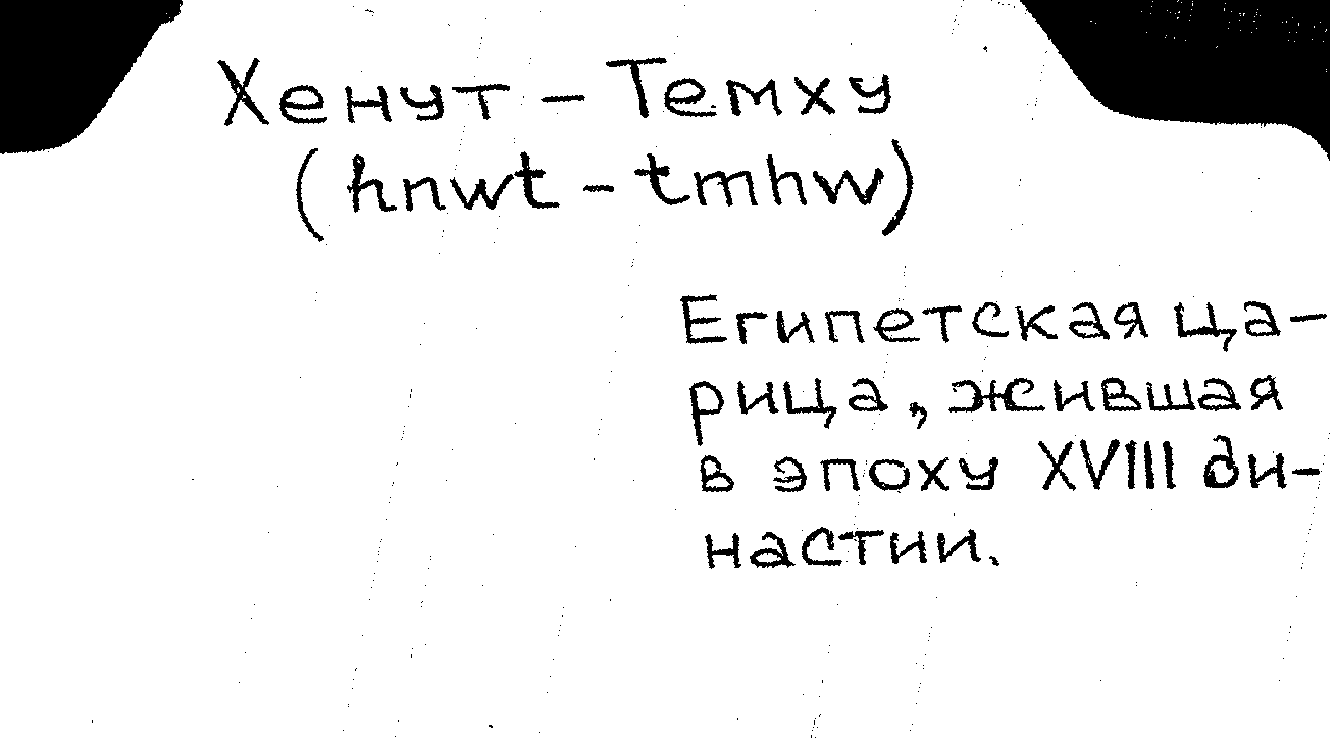 Хенут - Темху
(hnwt - tmhw)
Египетская ца-
рица, жившая
в эпоху XVIII ди-
настии.